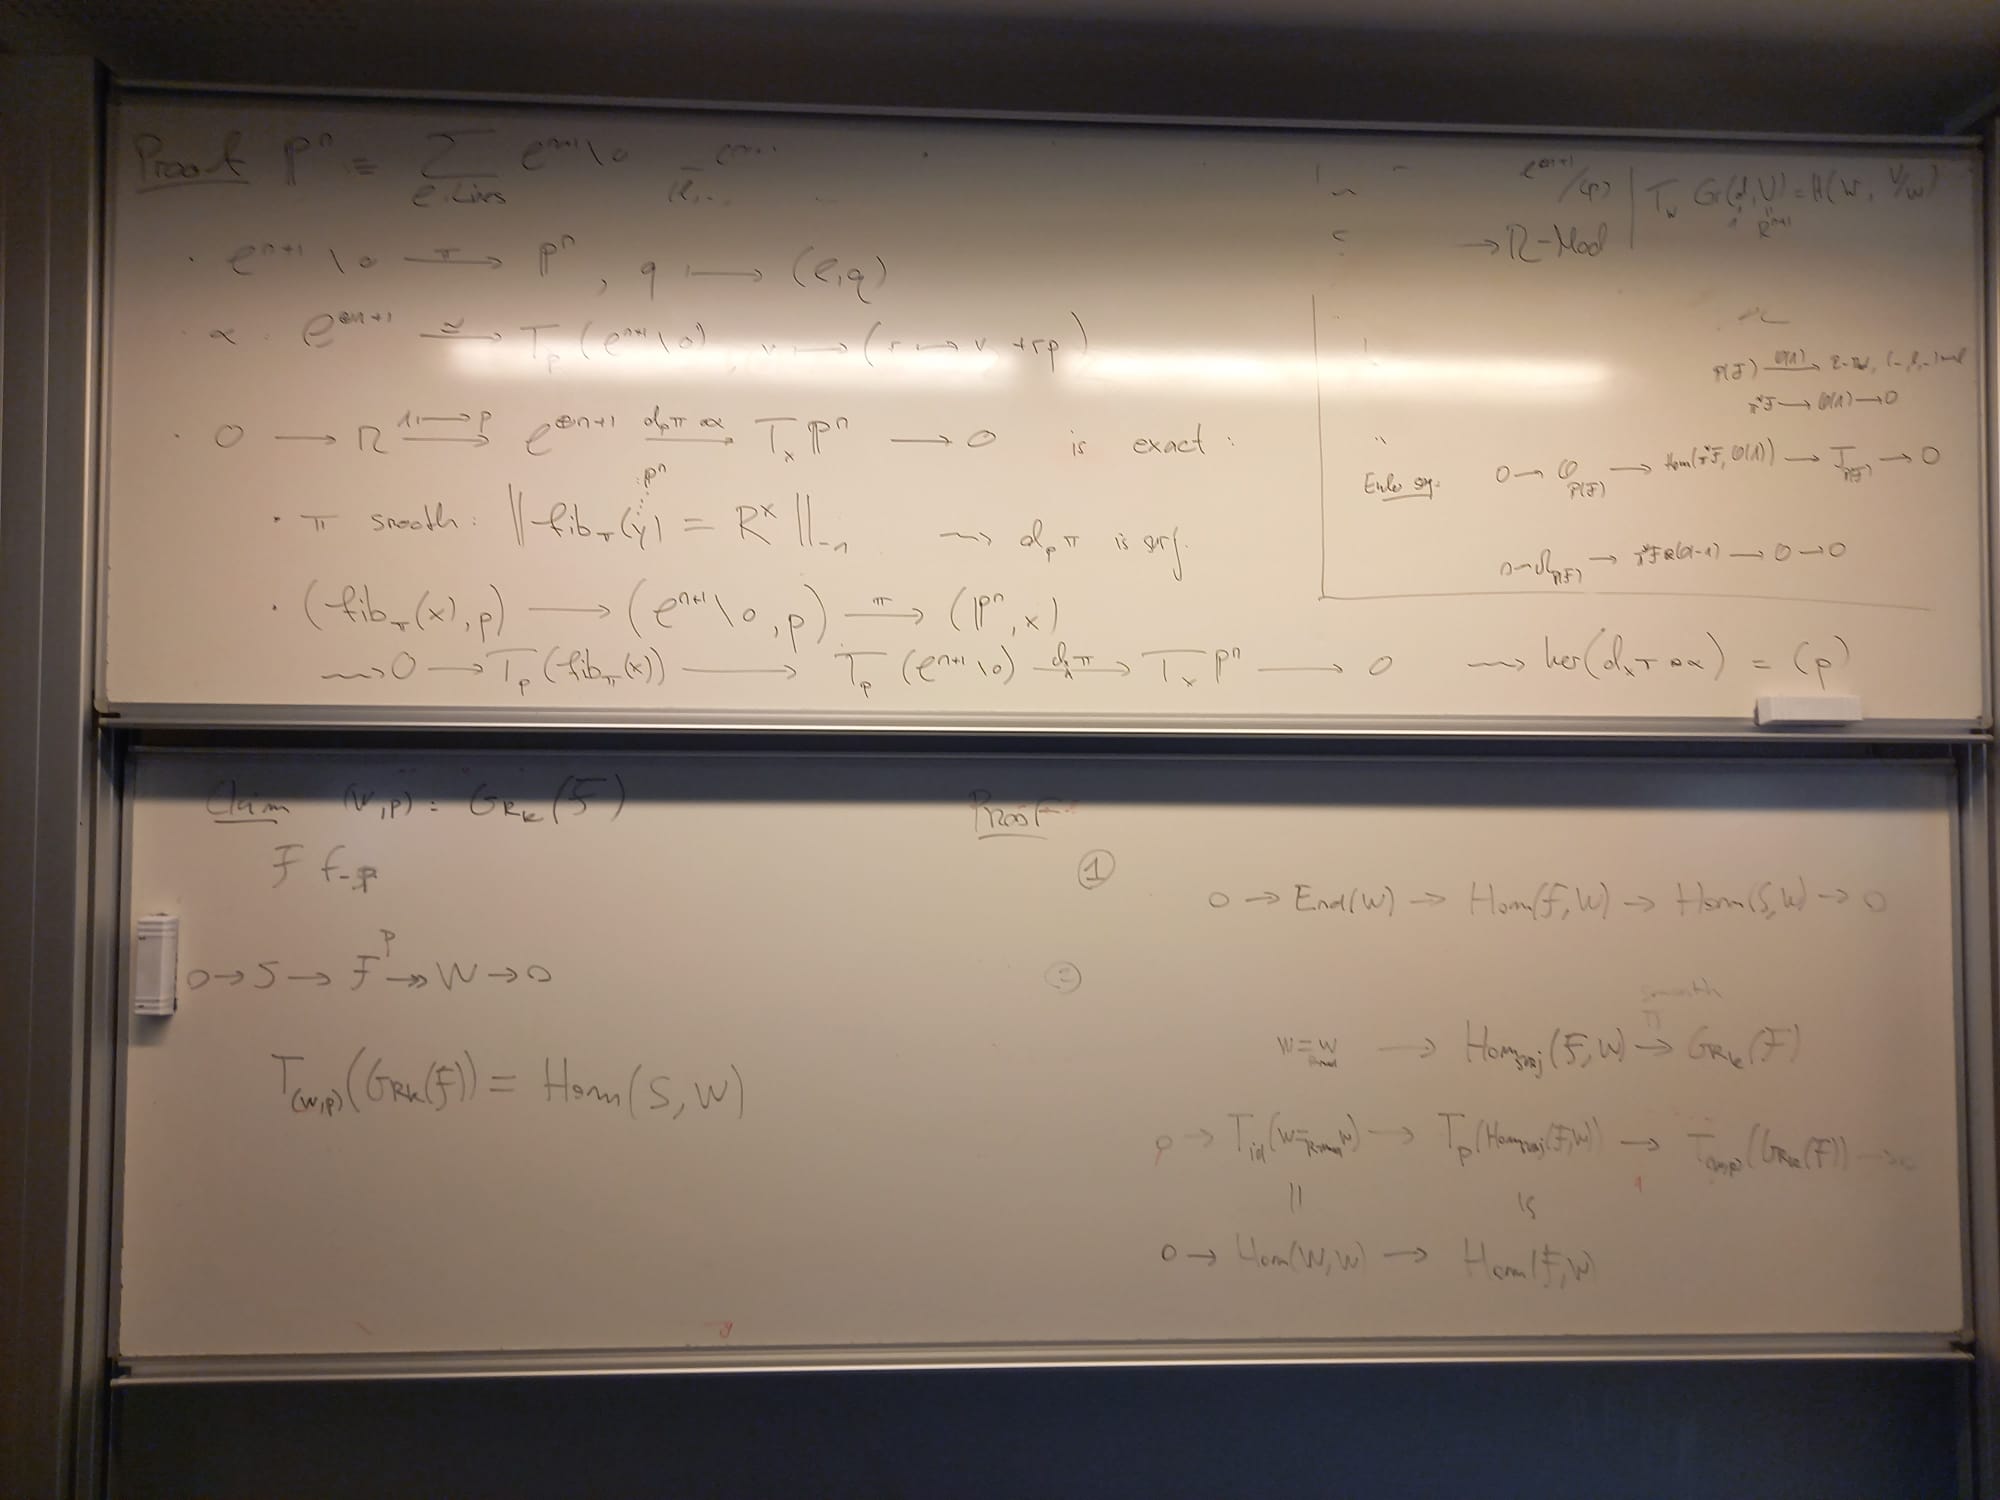 Proof ℙⁿ = ∑_{ℓ:Lines} ℓⁿ⁺¹\0
· ℓⁿ⁺¹\0 —π→ ℙⁿ , q ↦ (ℓ,q)
α : ℓ^{⊕n+1} —≃→ T_p(ℓⁿ⁺¹\0) , v ↦ (r ↦ v + rp)
· 0 → R —1↦p→ ℓ^{⊕n+1} —d_pπ∘α→ T_x ℙⁿ → 0 is exact :
ℙⁿ
· π smooth : ‖fib_π(y) = R^×‖₋₁ ⇝ d_p π is surj.
· (fib_π(x), p) → (ℓⁿ⁺¹\0, p) —π→ (ℙⁿ, x)
⇝ 0 → T_p(fib_π(x)) → T_p(ℓⁿ⁺¹\0) —dπ→ T_x ℙⁿ → 0 ⇝ ker(d_xπ∘α) = (p)
ℓ^{⊕n+1}/(p) | T_W Gr(d,V) = H(W, V/W)
R^{n+1}
→ R-Mod
P(F) —O(1)→
π*F → O(1) → 0
Euler seq. 0 → O_{P(F)} → Hom(π*F, O(1)) → T_{P(F)} → 0
0 → Ω_{P(F)} → π*F⊗O(-1) → O → 0
Claim (W,p) : Gr_k(F)
F f-p
0 → S → F —p↠ W → 0
T_{(W,p)}(Gr_k(F)) = Hom(S, W)
Proof
① 0 → End(W) → Hom(F,W) → Hom(S,W) → 0
②
smooth
W =_{R-mod} W → Hom_{surj}(F,W) —π→ Gr_k(F)
0 → T_{id}(W =_{R-mod} W) → T_p(Hom_{surj}(F,W)) → T_{(W,p)}(Gr_k(F)) → 0
|| ≅
0 → Hom(W,W) → Hom(F,W)